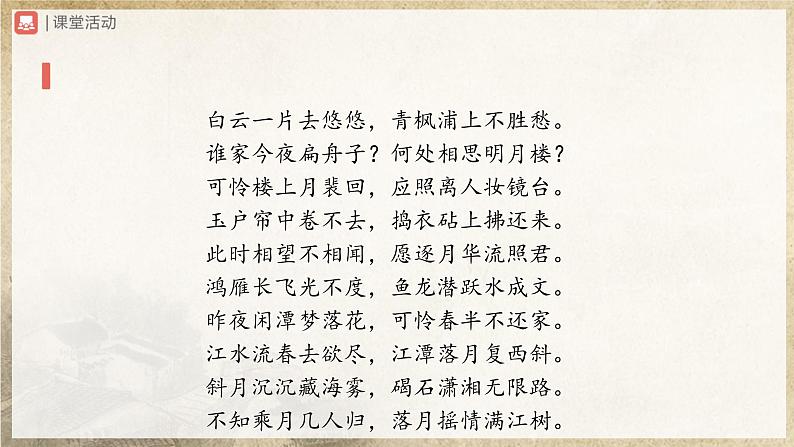 | 课堂活动
白云一片去悠悠，青枫浦上不胜愁。
谁家今夜扁舟子？何处相思明月楼？
可怜楼上月裴回，应照离人妆镜台。
玉户帘中卷不去，捣衣砧上拂还来。
此时相望不相闻，愿逐月华流照君。
鸿雁长飞光不度，鱼龙潜跃水成文。
昨夜闲潭梦落花，可怜春半不还家。
江水流春去欲尽，江潭落月复西斜。
斜月沉沉藏海雾，碣石潇湘无限路。
不知乘月几人归，落月摇情满江树。